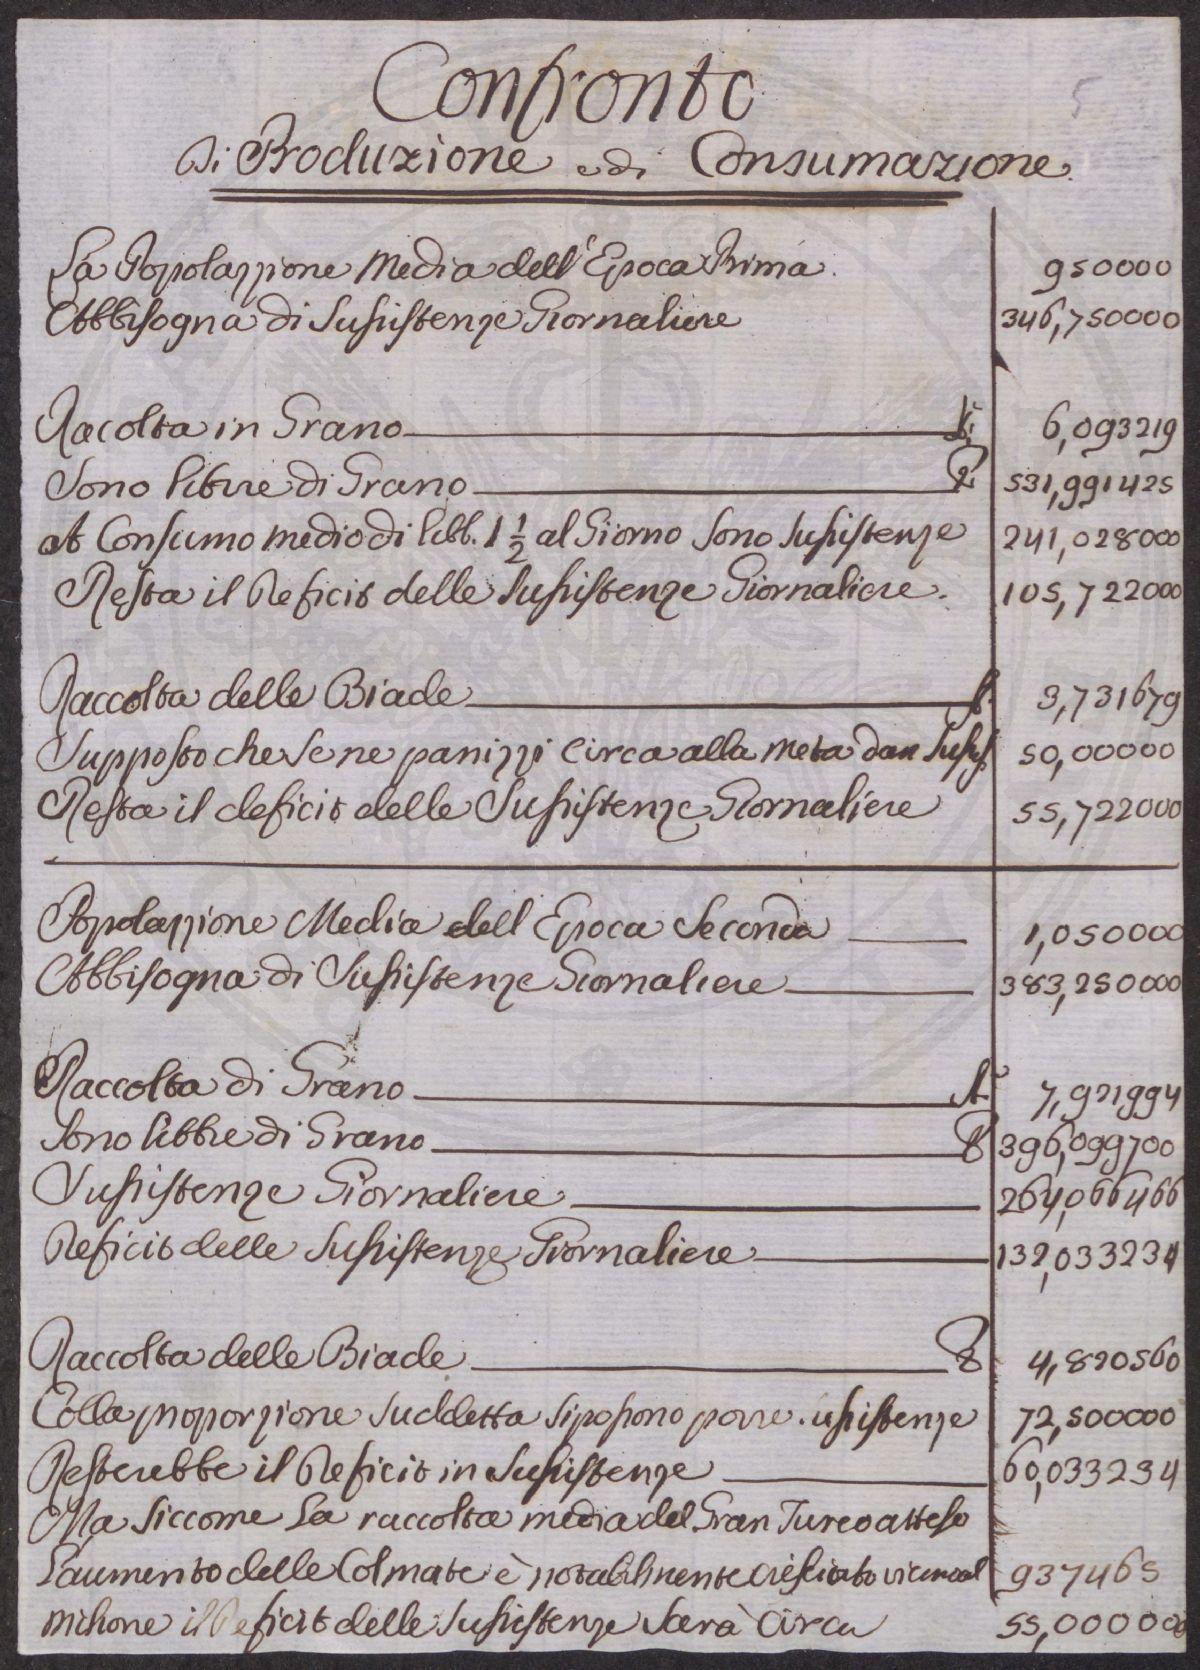 5
Confronto
Di Produzione e di Consumazione
La Popolazzione Media dell' Epoca Prima 950000
Abbisogna di Sussistenze Giornaliere 346,750000
Racolta in Grano 6,093219
Sono libbre di Grano 531,991425
At Consumo medio di libb. 1 1/2 al Giorno Sono Sussistenze 241,028000
Resta il Deficit delle Sussistenze Giornaliere. 105,722000
Raccolta delle Biade 3,731679
Supposto che Se ne panizzi Circa alla meta dan Susis. 50,00000
Resta il deficit delle Sussistenze Giornaliere 55,722000
Popolazzione Media dell Epoca Seconda 1,050000
Abbisogna di Sussistenze Giornaliere 383,250000
Raccolta di Grano 7,921994
Sono libbre di Grano 396,099700
Sussistenze Giornaliere 264,066466
Deficit delle Sussistenze Giornaliere 132,033234
Raccolta delle Biade 4,820560
Colla proporzione Suddetta si possono porre .ussistenze 72,500000
Resterebbe il Deficit in Sussistenze 60,033234
Ma Siccome La raccolta media del Gran Turco atteso
L'aumento delle Colmate è notabilmente 937465
milione il Deficit delle Sussistenze Sarà Circa 55,000000